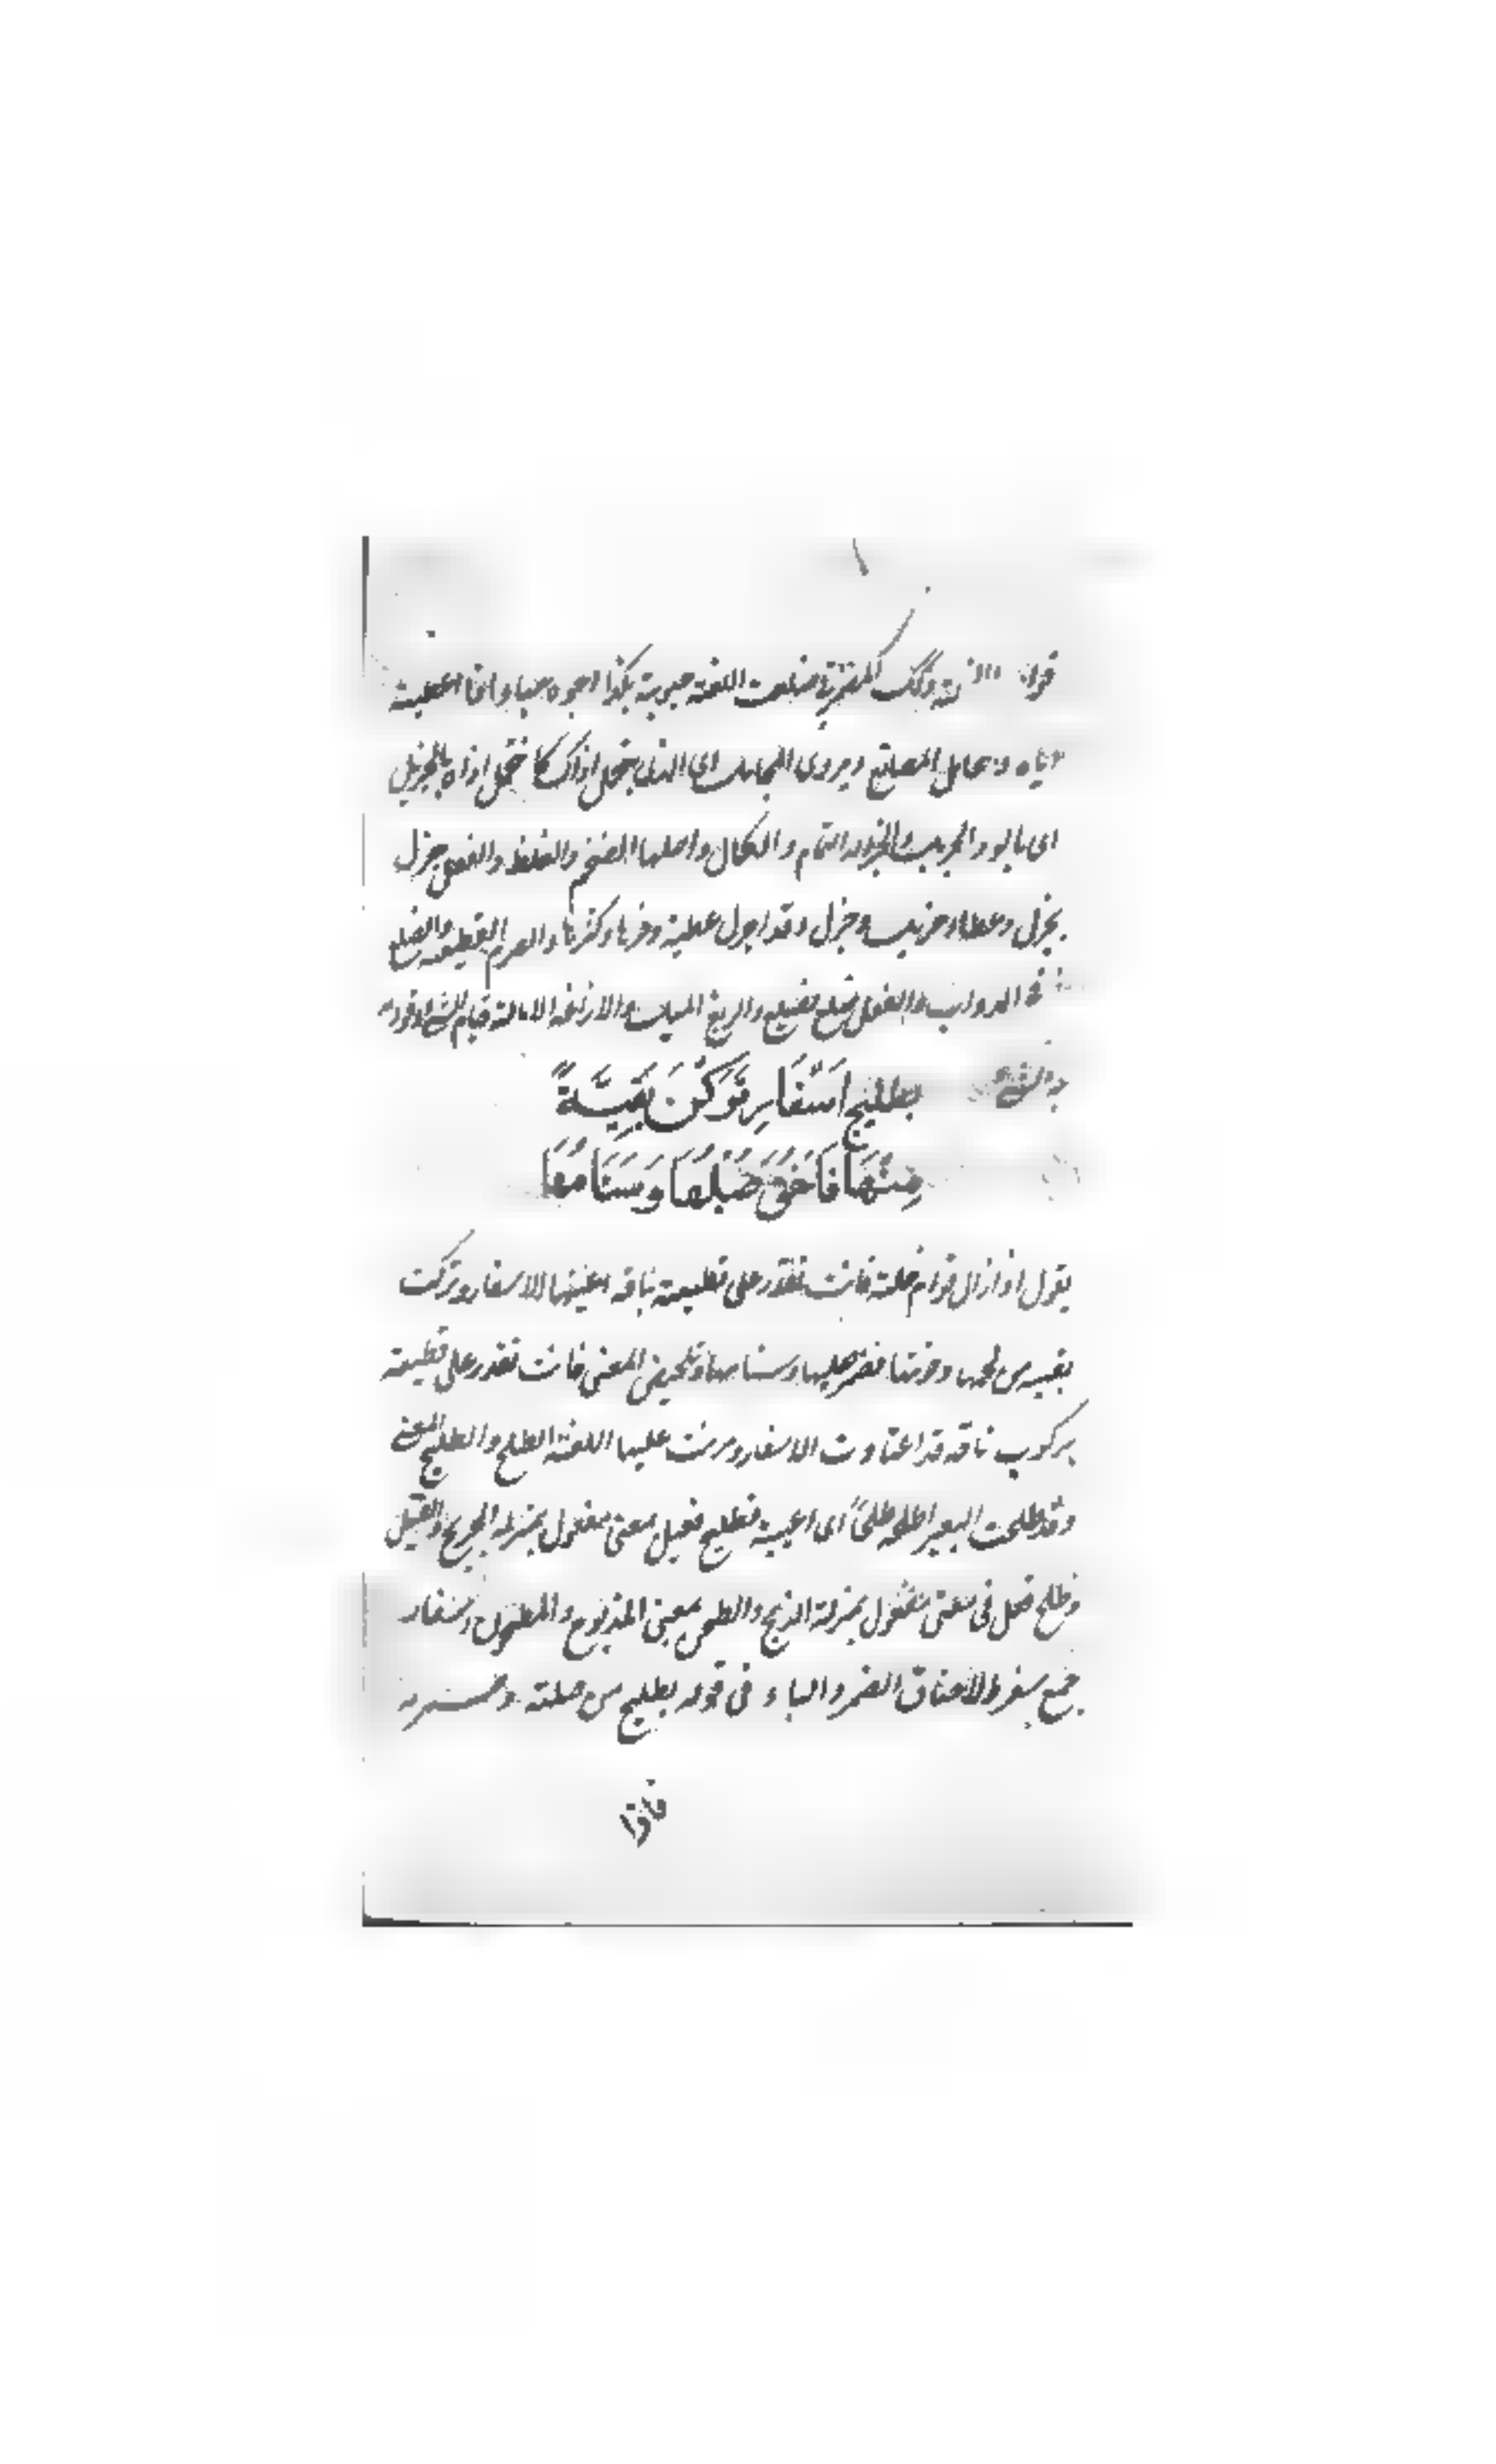 وذلك اللغة حبوته بكذا احبوه حباء اذا اعطيته
اياه والمجامل المصانع ويروى المحامل اى الذى يتحمل اذاك كما تتحمل اذاه بالجزيل
اى بالود الجزيل والجزالة التمام والكمال واصلها الضخم والغلظ والفعل جزل
يجزل وعطاء جزيل وجزل وقد اجزل عطيته وفرها وكثرها والصرم القطيعة والضلع
فى الدواب والفعل ضلع يضلع والزيغ الميل والازاغة الامالة قوام الشئ
بطليح اسفار تركن بقية
منها فاحنق صلبها وسنامها
يقول اذا زال قوام خلته فانت تقدر على قطيعته بناقة اعيتها الاسفار وتركت
بقية من لحمها وقوتها فضمر صلبها وسنامها وتلخيص المعنى فانت تقدر على قطيعته
بركوب ناقة قد اعتادت الاسفار ومرنت عليها اللغة الطلح والطليح المعى
وقد طلحت البعير اطلحه طلحا اى اعييته فطليح فعيل بمعنى مفعول بمنزلة الجريح والقتيل
وطلح فعل فى معنى مفعول بمنزلة الذبح والطحن بمعنى المذبوح والمطحون واسفار
جمع سفر والاحناق الضمر والباء فى قوله بطليح من صلة وصرمه
فاذا